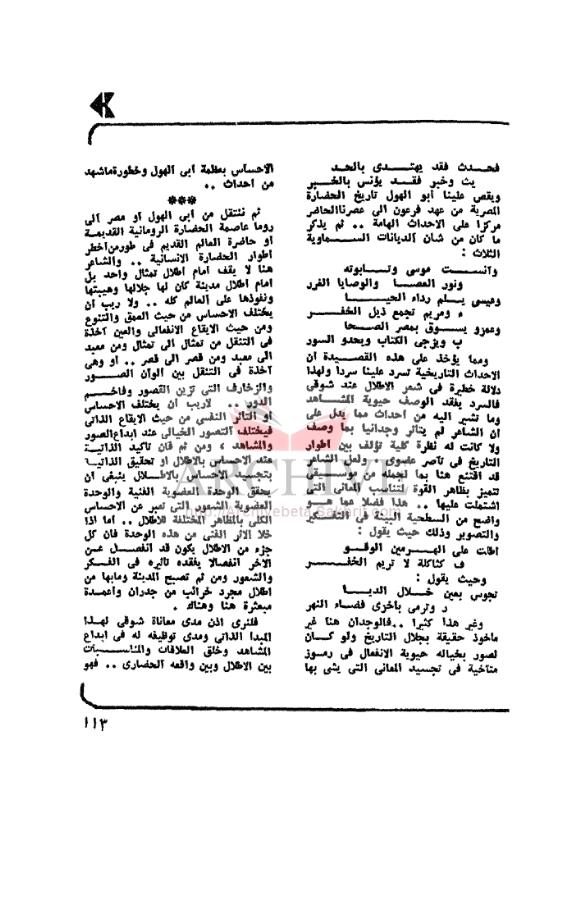 فحـــدث فقد يهتـــدى بالحـــد
يث وخبر فقـــد يؤنس بالخـــبر
ويقص علينا أبو الهول تاريخ الحضارة
المصرية من عهد فرعون الى عصرنا الحاضر
مركزا على الاحداث الهامة .. ثم يذكر
ما كان من شأن الديانات الســـماوية
الثلاث :
وآنســـت موسى وتـــابوته
ونور العصـــا والوصايا الغرر
وعيسى يـــلم رداء الحيـــا
ء ومريم تجمع ذيل الخفـــر
وعمرو يســـوق بمصر الصحـــا
ب ويزجى الكتاب ويحدو السور
ومما يؤخذ على هذه القصـــيدة أن
الاحداث التاريخية تسرد علينا سردا ولهذا
دلالة خطيرة في شعر الاطلال عند شوقى
فالسرد يفقد الوصف حيوية المشـــاهد
وما تشير اليه من أحداث مما يدل على
أن الشاعر لم يتأثر وجدانيا بما وصف
ولا كانت له نظرة كلية تؤلف بين أطوار
التاريخ فى تآصر عضوى .. ولعل الشاعر
قد اقتنع هنا بما لجمله من موســـيقى
تتميز بظاهر القوة لتناسب المعانى التى
اشتملت عليها .. هذا فضلا عما هـــو
واضح من السطحية البيئة فى التفـــكير
والتصوير وذلك حيث يقول :
أطلت على الهـــرمين الوقـــو
ف كثاكلة لا تريم الحفـــر
وحيث يقول :
تجوس بعين خـــلال الديـــا
ر وترمى بأخرى فضـــاء النهر
وغير هذا كثيرا .. فالوجدان هنا غير
مأخوذ حقيقة بجلال التاريخ ولو كـــان
لصور بخياله حيوية الانفعال فى رمـــوز
متآخية فى تجسيد المعانى التى يشى بها
الاحساس بعظمة أبى الهول وخطورة ماشهد
من أحداث ..
***
ثم ننتقل من أبى الهول أو مصر الى
روما عاصمة الحضارة الرومانية القديمـــة
أو حاضرة العالم القديم فى طور من أخطر
أطوار الحضارة الانسانية .. والشاعر
هنا لا يقف أمام أطلال تمثال واحد بل
أمام أطلال مدينة كان لها جلالها وهيبتها
ونفوذها على العالم كله .. ولا ريب أن
يختلف الاحساس من حيث العمق والتنوع
ومن حيث الايقاع الانفعالى والعين آخذة
فى التنقل من تمثال الى تمثال ومن معبد
الى معبد ومن قصر الى قصر .. أو وهى
آخذة فى التنقل بين ألوان الصـــور
والزخارف التى تزين القصور وفاخـــم
الدور .. لاريب أن يختلف الاحساس
أو التأثر النفسى من حيث الايقاع الذاتى
فيختلف التصور الخيالى عند ابداع الصور
والمشاهد ، ومن ثم فان تأكيد الذاتيـــة
عند الاحساس بالاطلال أو تحقيق الذاتيـة
بتجسيد الاحساس بالاطـــلال ينبغى أن
يحقق الوحدة العضوية الفنية والوحدة
العضوية الشعور التى تعبر عن الاحساس
الكلى بالمظاهر المختلفة للأطلال .. أما اذا
خلا الاثر الفنى من هذه الوحدة فان كل
جزء من الاطلال يكون قد انفصـــل عـــن
الآخر انفصالا يفقده تأثيره فى الفـــكر
والشعور ومن ثم تصبح المدينة ومابها من
أطلال مجرد خرائب من جدران وأعمـــدة
مبعثرة هنا وهناك .
فلنرى اذن مدى معاناة شوقى لهـــذا
المبدأ الذاتى ومدى توظيفه له فى ابداع
المشاهد وخلق العلاقات والمناســـبات
بين الاطلال وبين واقعه الحضارى .. فهو
١١٣
ARCHIVE